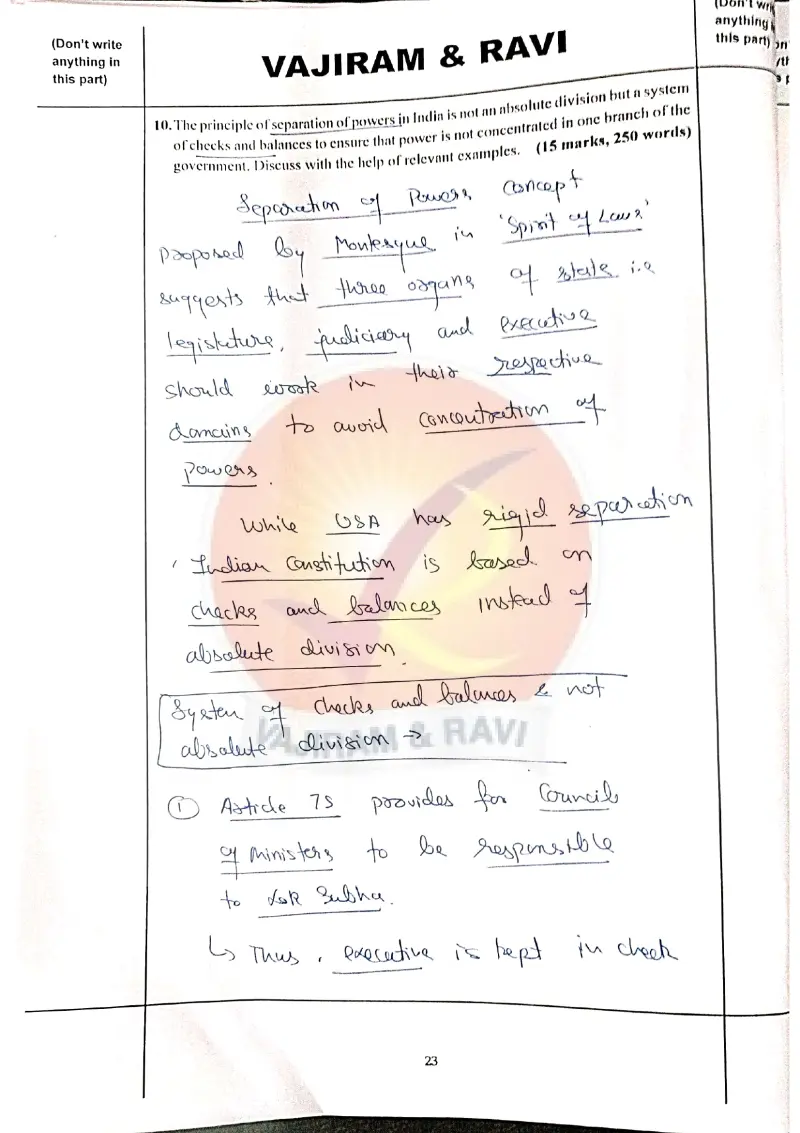 (Don't write
anything in
this part)
VAJIRAM & RAVI
(Don't wri
anything
this part)
10. The principle of separation of powers in India is not an absolute division but a system
of checks and balances to ensure that power is not concentrated in one branch of the
government. Discuss with the help of relevant examples. (15 marks, 250 words)
Separation of Powers concept
proposed by Montesque in 'Spirit of Laws'
suggests that three organs of state i.e
legislature, judiciary and executive
should work in their respective
domains to avoid concentration of
powers.
While USA has rigid separation
, Indian Constitution is based on
checks and balances instead of
absolute division.
System of checks and balances & not
absolute division →
VAJIRAM & RAVI
① Article 75 provides for Council
of Ministers to be responsible
to Lok Sabha.
↳ Thus, executive is kept in check
23